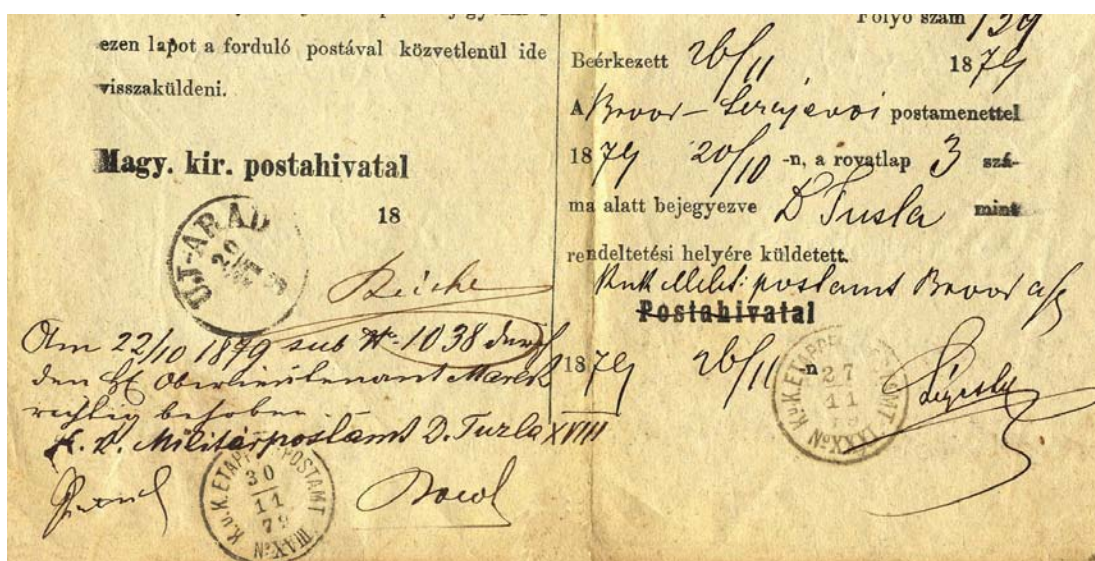 ezen lapot a forduló postával közvetlenül ide
visszaküldeni.
Magy. kir. postahivatal
18
UJ-ARAD
Am 22/10 1879 sub No 1038 durch
den Oberlieutenant Marek
richtig behoben
K. K. Militärpostamt D. Tuzla XVIII
K.u.K. ETAPPEN-POSTAMT No XVIII
30
11
79
Folyó szám 139
Beérkezett 26/11 1879
A Brood - Serajevoi postamenettel
1879 20/10 -n, a rovatlap 3 szá-
ma alatt bejegyezve D Tusla mint
rendeltetési helyére küldetett.
postamt Brood a/S
Postahivatal
1879 26/11 n
K.u.K. ETAPPEN-POSTAMT
27
11